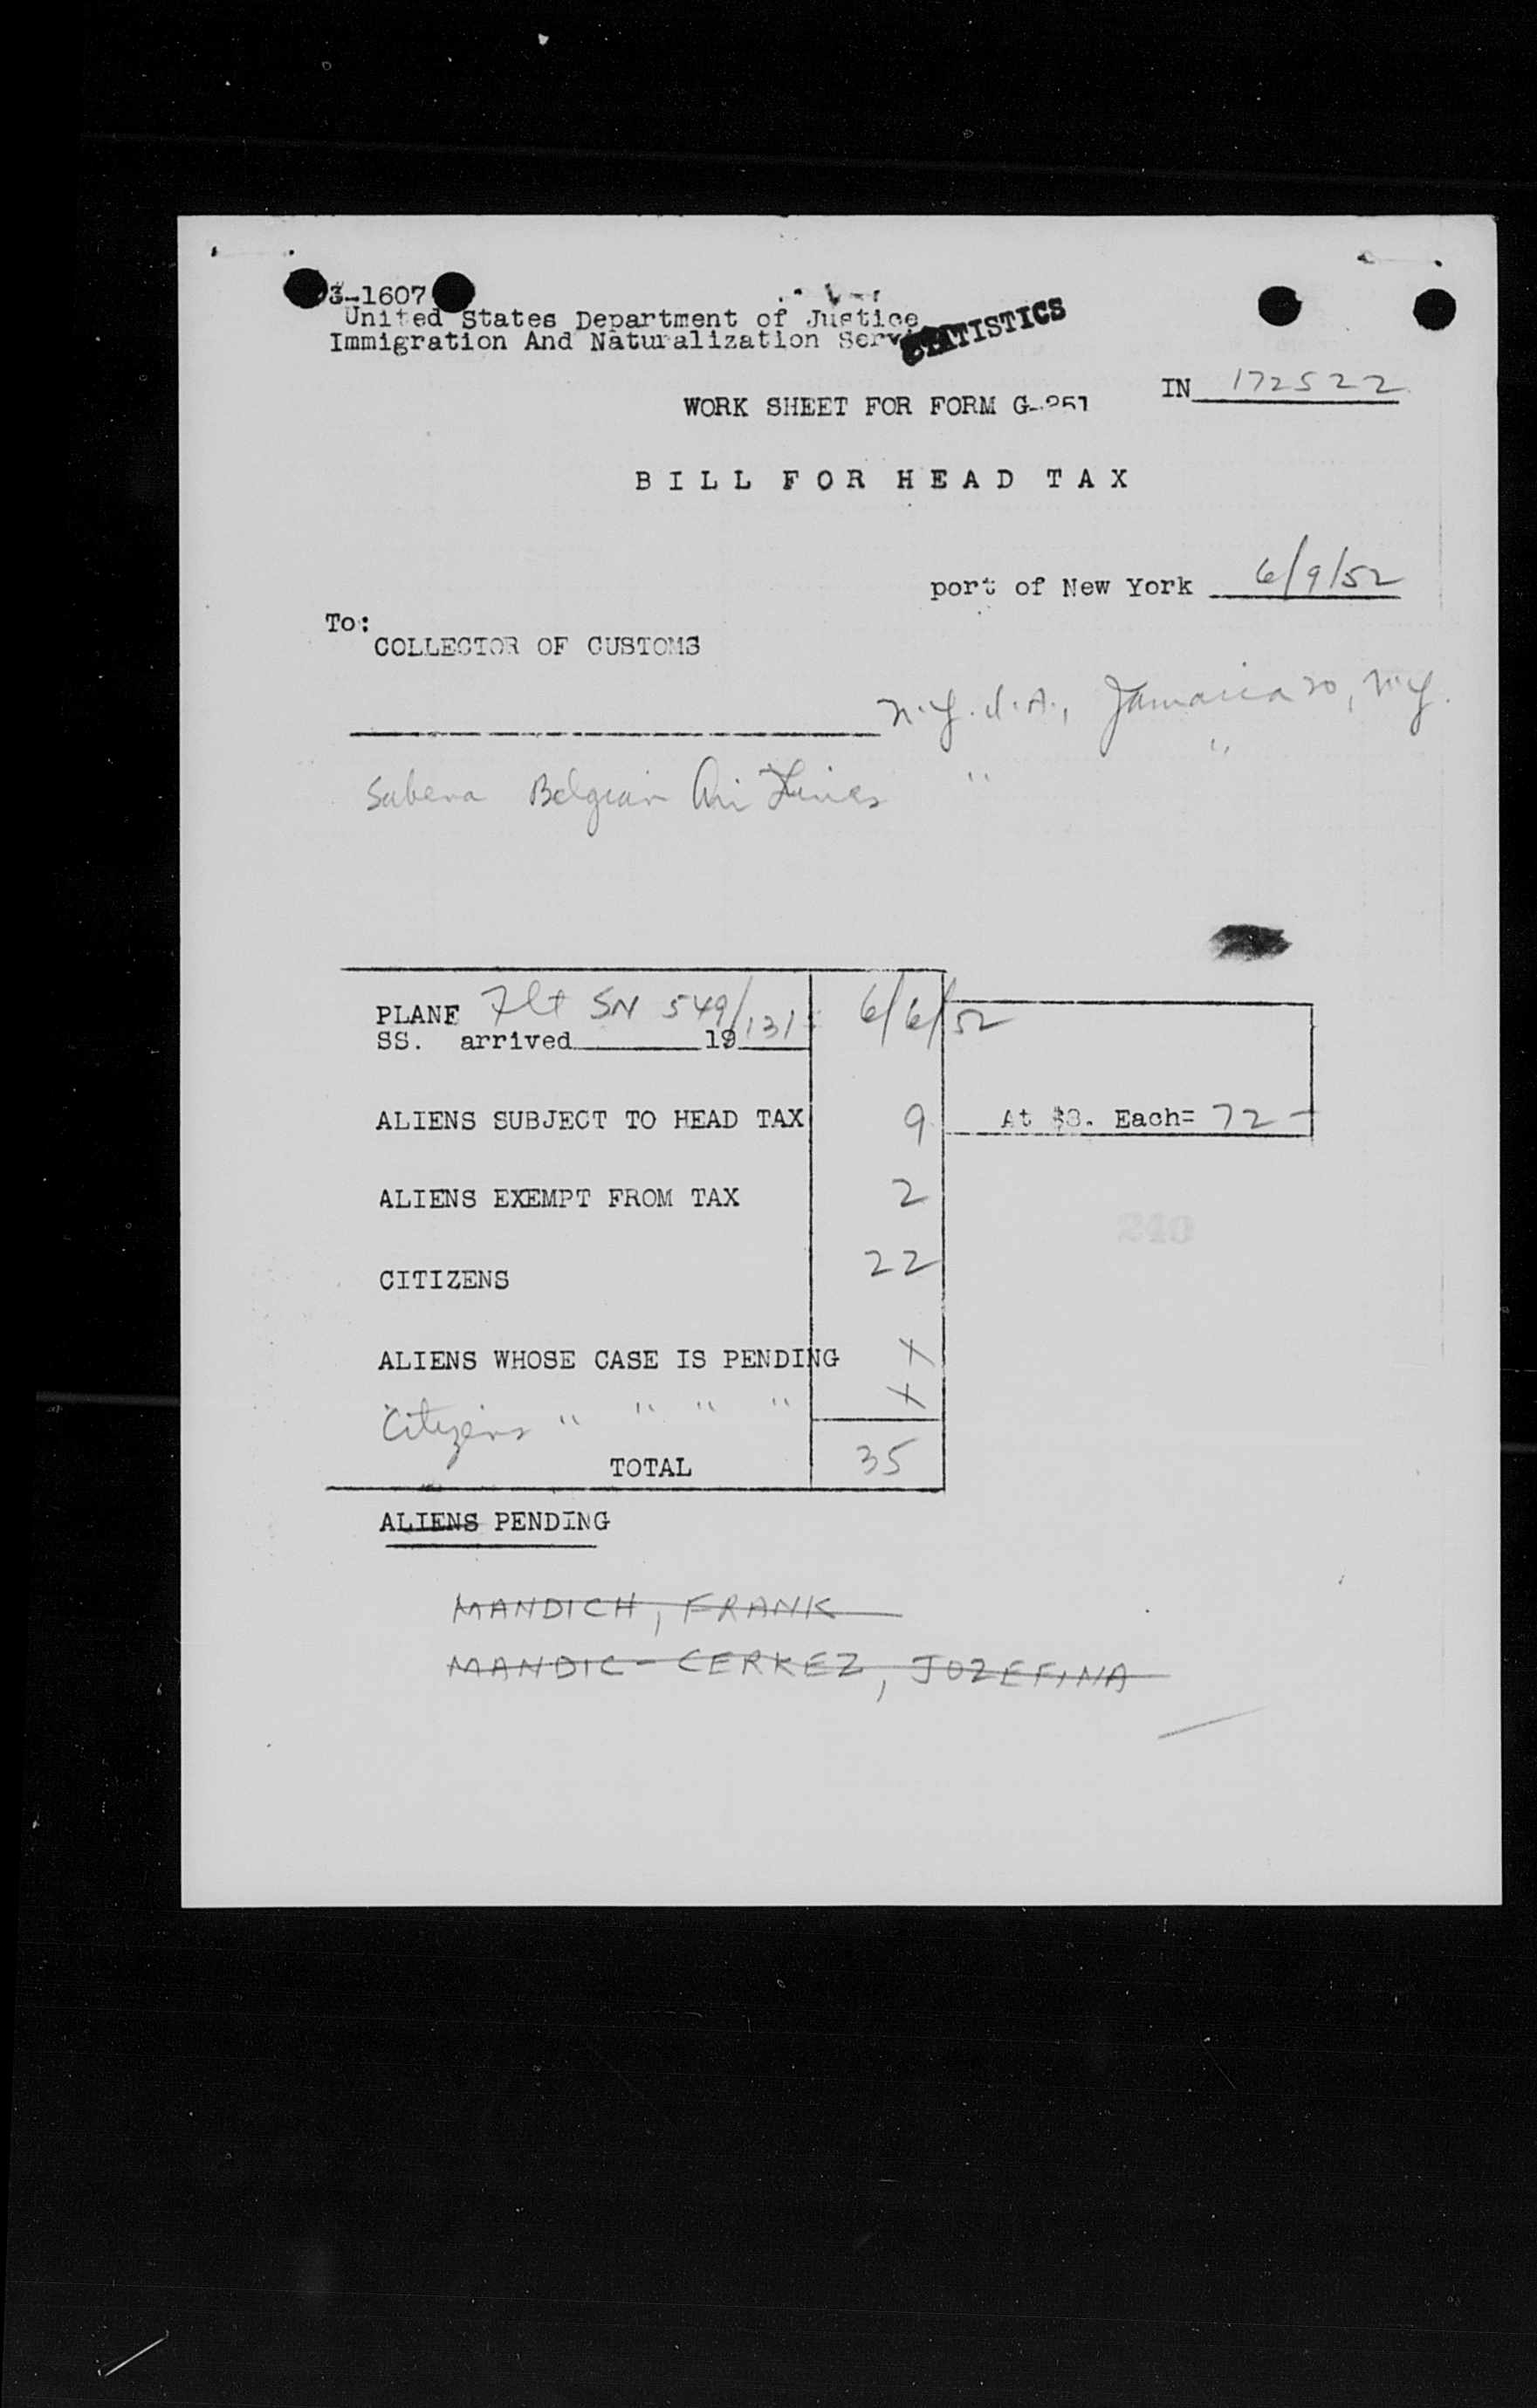 3-1607
United States Department of Justice
Immigration And Naturalization Serv
STATISTICS
IN 172522
WORK SHEET FOR FORM G-251
BILL FOR HEAD TAX
port of New York 6/9/52
To:
COLLECTOR OF CUSTOMS
N.Y.I.A., Jamaica 20, N.Y.
Sabena Belgian Air Lines " "
PLANE Flt SN 549/131 6/6/52
SS. arrived 19
ALIENS SUBJECT TO HEAD TAX 9 At $8. Each= 72-
ALIENS EXEMPT FROM TAX 2
240
CITIZENS 22
ALIENS WHOSE CASE IS PENDING X
Citizens " " " " X
TOTAL 35
ALIENS PENDING
MANDICH, FRANK
MANDIC-CERKEZ, JOZEFINA